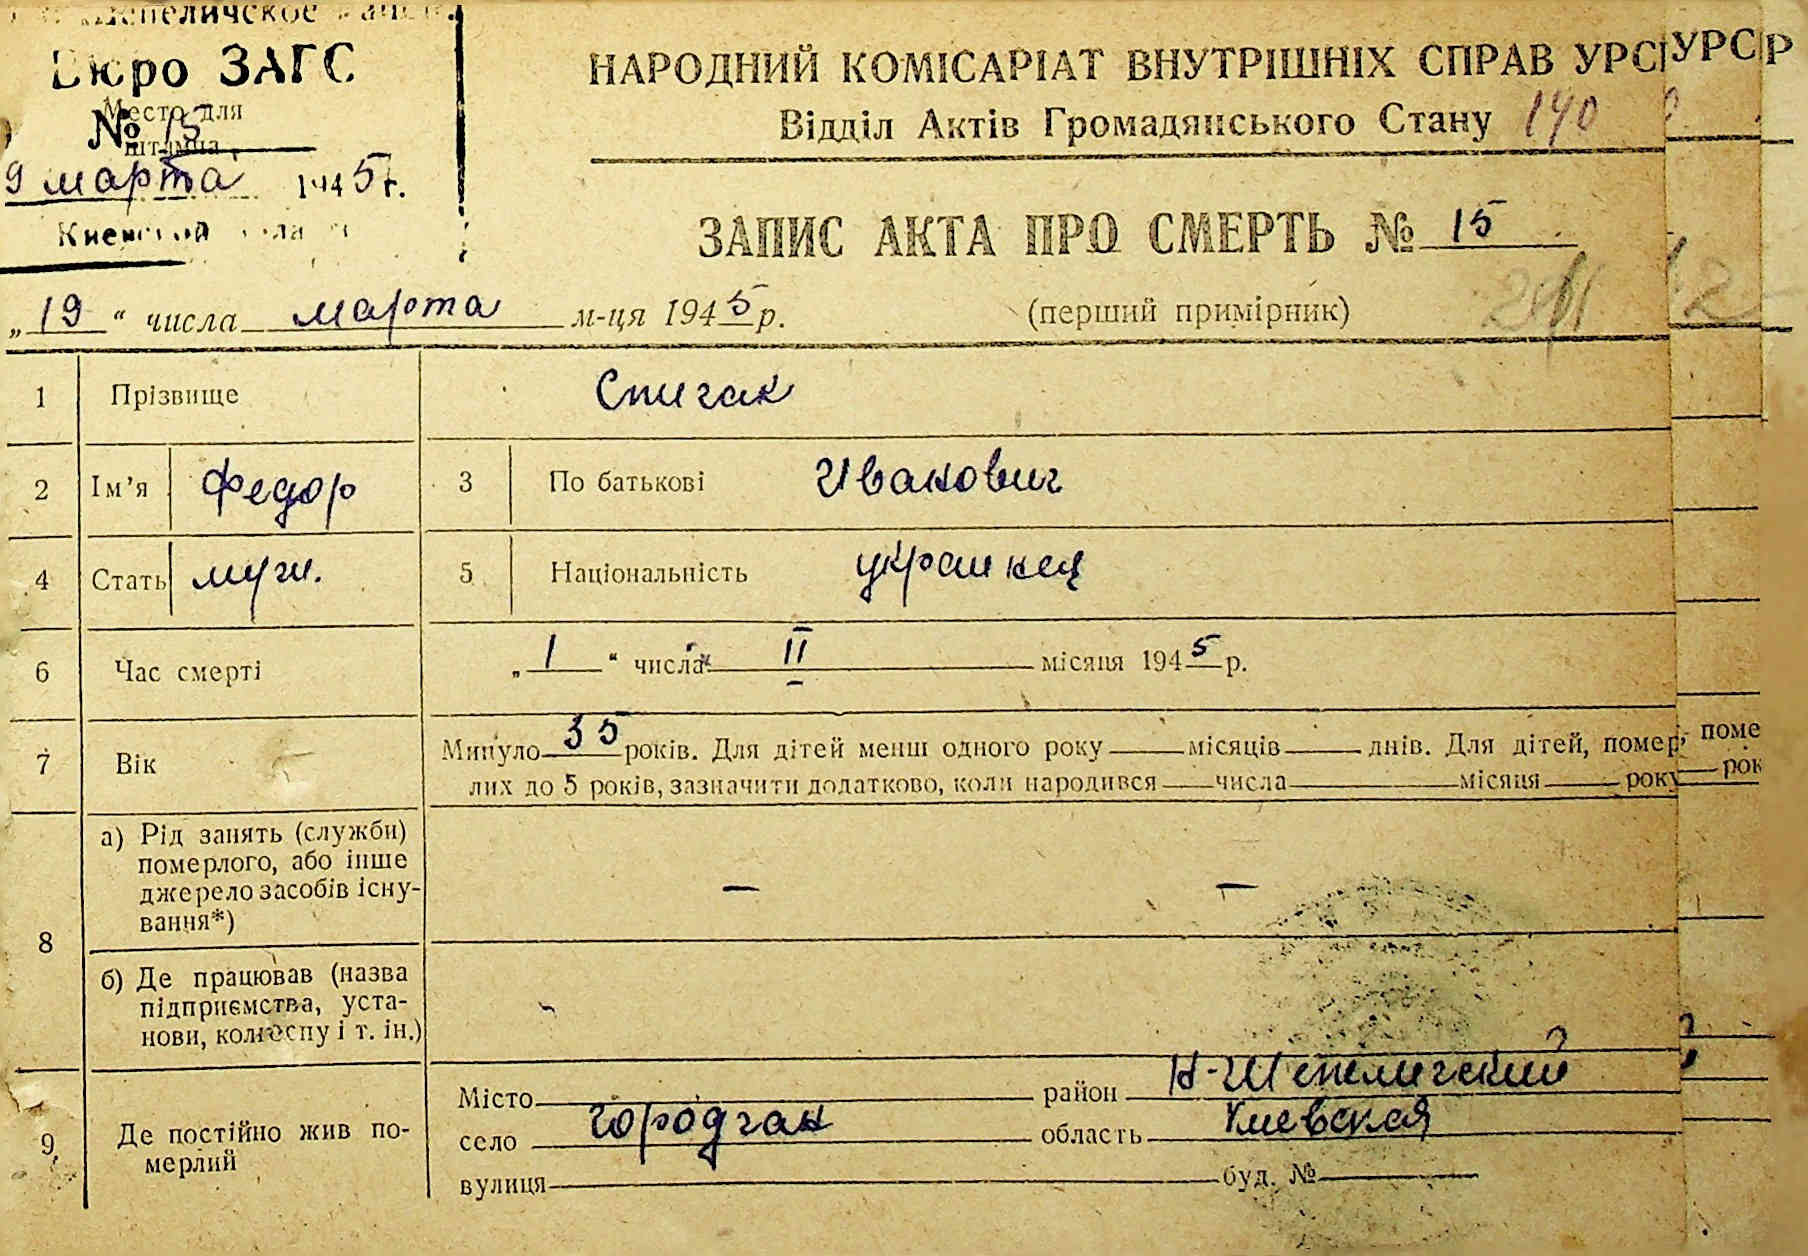 Бюро ЗАГС
Место для
штампа
№ 15
9 марта 1945 г.
Киевской
НАРОДНИЙ КОМІСАРІАТ ВНУТРІШНІХ СПРАВ УРС УРС Р
Відділ Актів Громадянського Стану 140
ЗАПИС АКТА ПРО СМЕРТЬ № 15
„ 19 “ числа марта м-ця 1945 р. (перший примірник)
1 Прізвище Спигак
2 Ім’я Федор 3 По батькові Иванович
4 Стать муж. 5 Національність украинец
6 Час смерті „ 1 “ числа II місяця 1945 р.
7 Вік Минуло 35 років. Для дітей менш одного року місяців днів. Для дітей, помер- поме
лих до 5 років, зазначити додатково, коли народився числа місяця року рок
8 а) Рід занять (служби)
померлого, або інше
джерело засобів існу-
вання*) — —
б) Де працював (назва
підприємства, уста-
нови, колгоспу і т. ін.)
9 Де постійно жив по-
мерлий
Місто район Н-Шепеличский
село Городчан область Киевская
вулиця буд. №